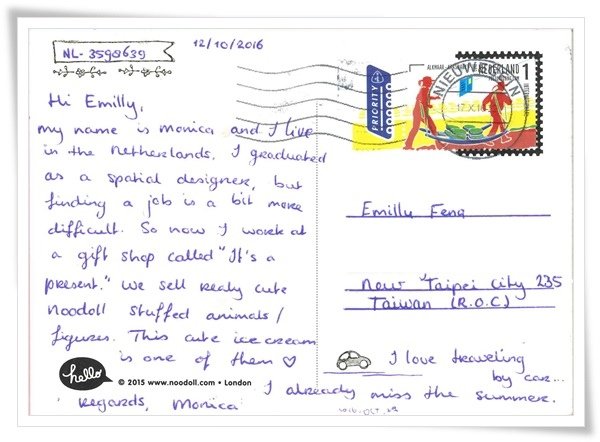 NL-3598639
12/10/2016
Hi Emilly,
my name is Monica and I live
in the Netherlands. I graduated
as a spatial designer, but
finding a job is a bit more
difficult. So now I work at
a gift shop called "It's a
present." We sell realy cute
Noodoll stuffed animals/
figures. This cute ice cream
is one of them ♡
hello
© 2015 www.noodoll.com • London
Regards, Monica
PRIORITY
NEDERLAND 1
NIEUWEGEIN
Emilly Feng
New Taipei City 235
Taiwan (R.O.C)
I love traveling
by car...
I already miss the summer.